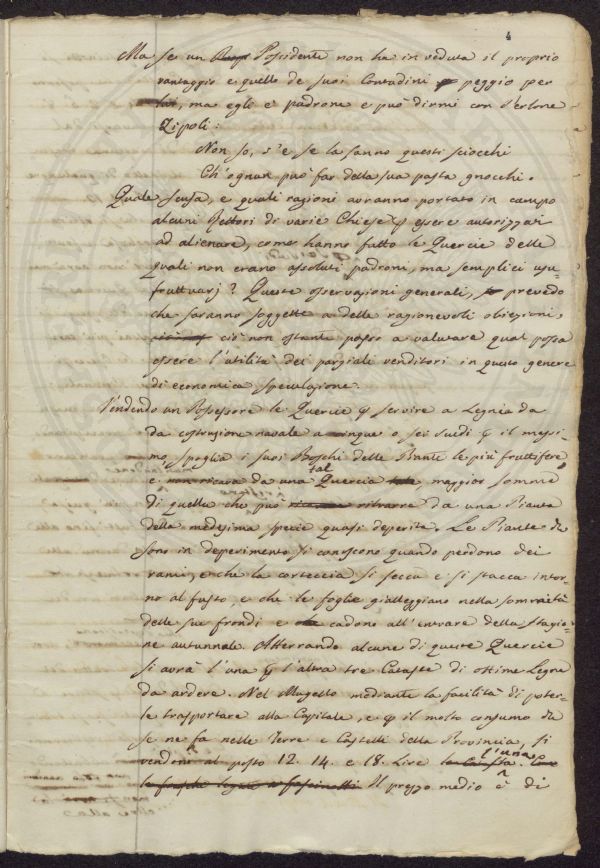 4
Ma se un Possidente non ha in veduta il proprio
vantaggio e quello de suoi Contadini peggio per
lui, ma egli è padrone e può dirmi con Perlone
Zipoli:
Non so, s'e se la sanno questi sciocchi
Ch'ognun può far della sua pasta gnocchi.
Quale scusa, e quali ragioni avranno portato in campo
alcuni Rettori di varie Chiese p essere autorizzati
ad alienare, come hanno fatto le Quercie delle
quali non erano assoluti padroni, ma semplici usu-
fruttuarj? Queste osservazioni generali, prevedo
che saranno soggette a delle ragionevoli obiezioni,
ciò non ostante passo a valutare qual possa
essere l'utilità dei parziali venditori in questo genere
di economica speculazione.
Vendendo un Possessore le Quercie p servire a Legnia da
da costruzione navale a cinque o sei scudi p il messi-
mo, spoglia i suoi Boschi delle Piante le più fruttifere,
e non ricava da una tal Quercia, maggior somme
di quella che può ritrarre da una Pianta
della medesima specie quasi deperita. Le Piante che
sono in deperimento si conoscono quando perdono dei
rami, e che la corteccia si secca e si stacca intor-
no al fusto, e che le foglie gialleggiano nella sommità
delle sue frondi e cadono all'entrare della stagio-
ne autunnale. Atterrando alcune di queste Quercie
si avrà l'una p l'altra tre Cataste di ottime Legne
da ardere. Nel Mugello mediante la facilità di poter-
le trasportare alla Capitale, e p il molto consumo che
se ne fa nelle Terre e Castelli della Provincia, si
vendono al posto 12. 14. e 18. Lire l'una
le frasche legate a fascinotti Il prezzo medio è di